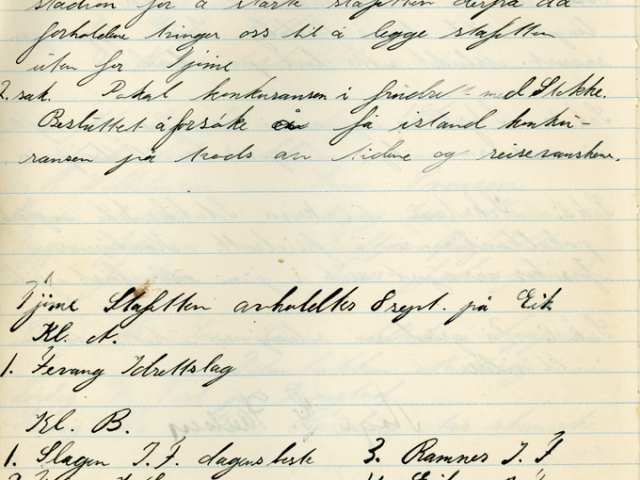 stadion for å starte stafetten derfra da
forholdene tvinger oss til å legge stafetten
uten for Tjøme
2. sak. Pokal konkuransen i friidrett med Stokke.
Besluttet å forsøke å få istand konku-
ransen på trods av tidene og reisevanskene.
Tjøme Stafetten avholdtes 8 sept. på Eik
Kl. A.
1. Fevang Idrettslag
Kl. B.
1. Slagen I. F. dagens beste 3. Ramnes I. F